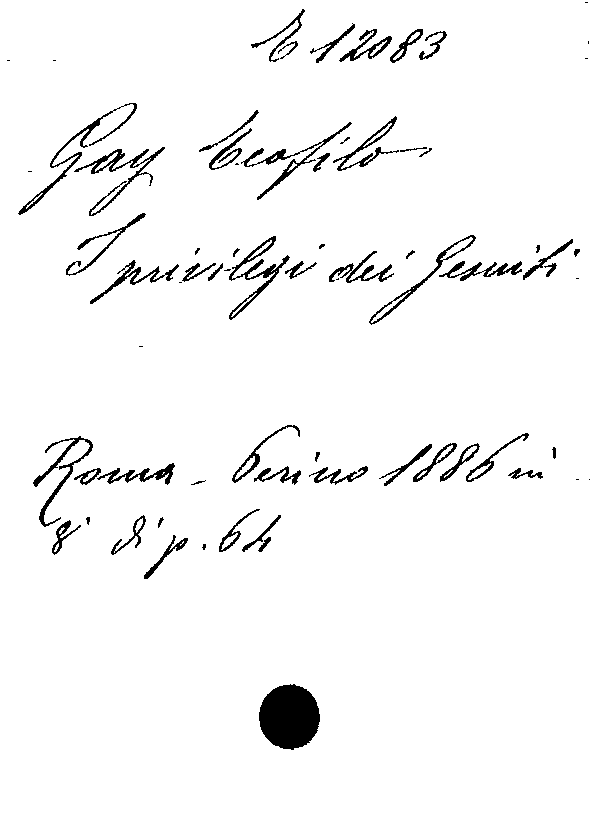 E 12083
Gay Teofilo
I privilegi dei Gesuiti
Roma - Perino 1886 in
8° di p. 64